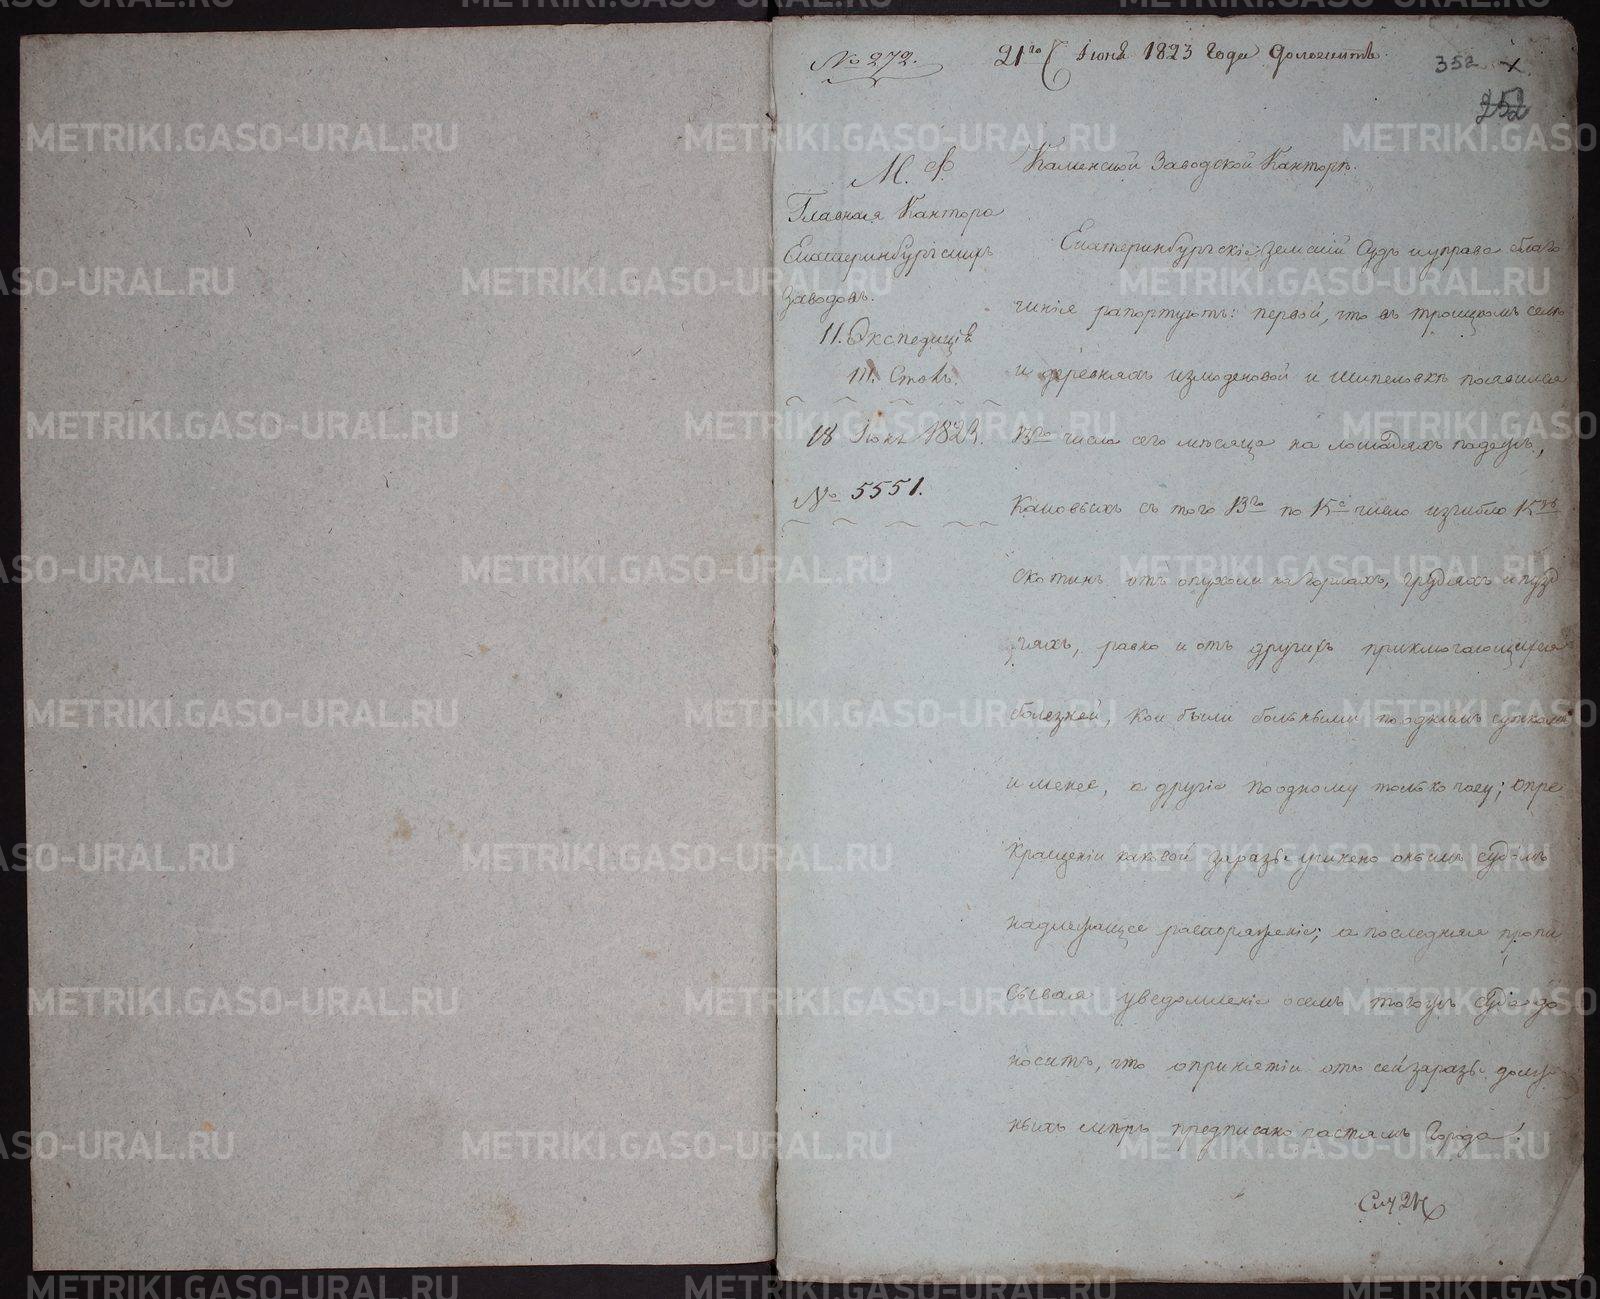 № 272.
21го Июня 1823 Года Доложить
352
252
М. Ф.
Главная Кантора
Екатеринбургскихъ
Заводовъ.
II. Экспедиція
III. Столъ.
18 Июня 1823.
№ 5551.
Каменской Заводской Канторѣ.
Екатеринбургскіе: Земский Судъ и управа благо
чинія рапортуютъ: первой, что въ троицкомъ селѣ
и деревняхъ измоденовой и Шипеловкѣ появился
13го числа сего мѣсяца на лошадяхъ падежъ,
каковыхъ съ того 13го по 15е число изгибло 15ть
скотинъ отъ опухоли на горлахъ, грудяхъ и пузд
ряхъ, равно и отъ другихъ приключающихся
болезней, кои были больными по однимъ суткамъ
и менее, а другіе по одному только часу; о пре
кращеніи каковой заразы учинено онымъ судомъ
надлежащее распоряженіе; а последняя пропи
сывая уведомленіе о семъ тогожъ суда до
носитъ, что о принятіи отъ сей заразы долж
ныхъ мѣръ предписано частямъ Города.
METRIKI.GASO-URAL.RU